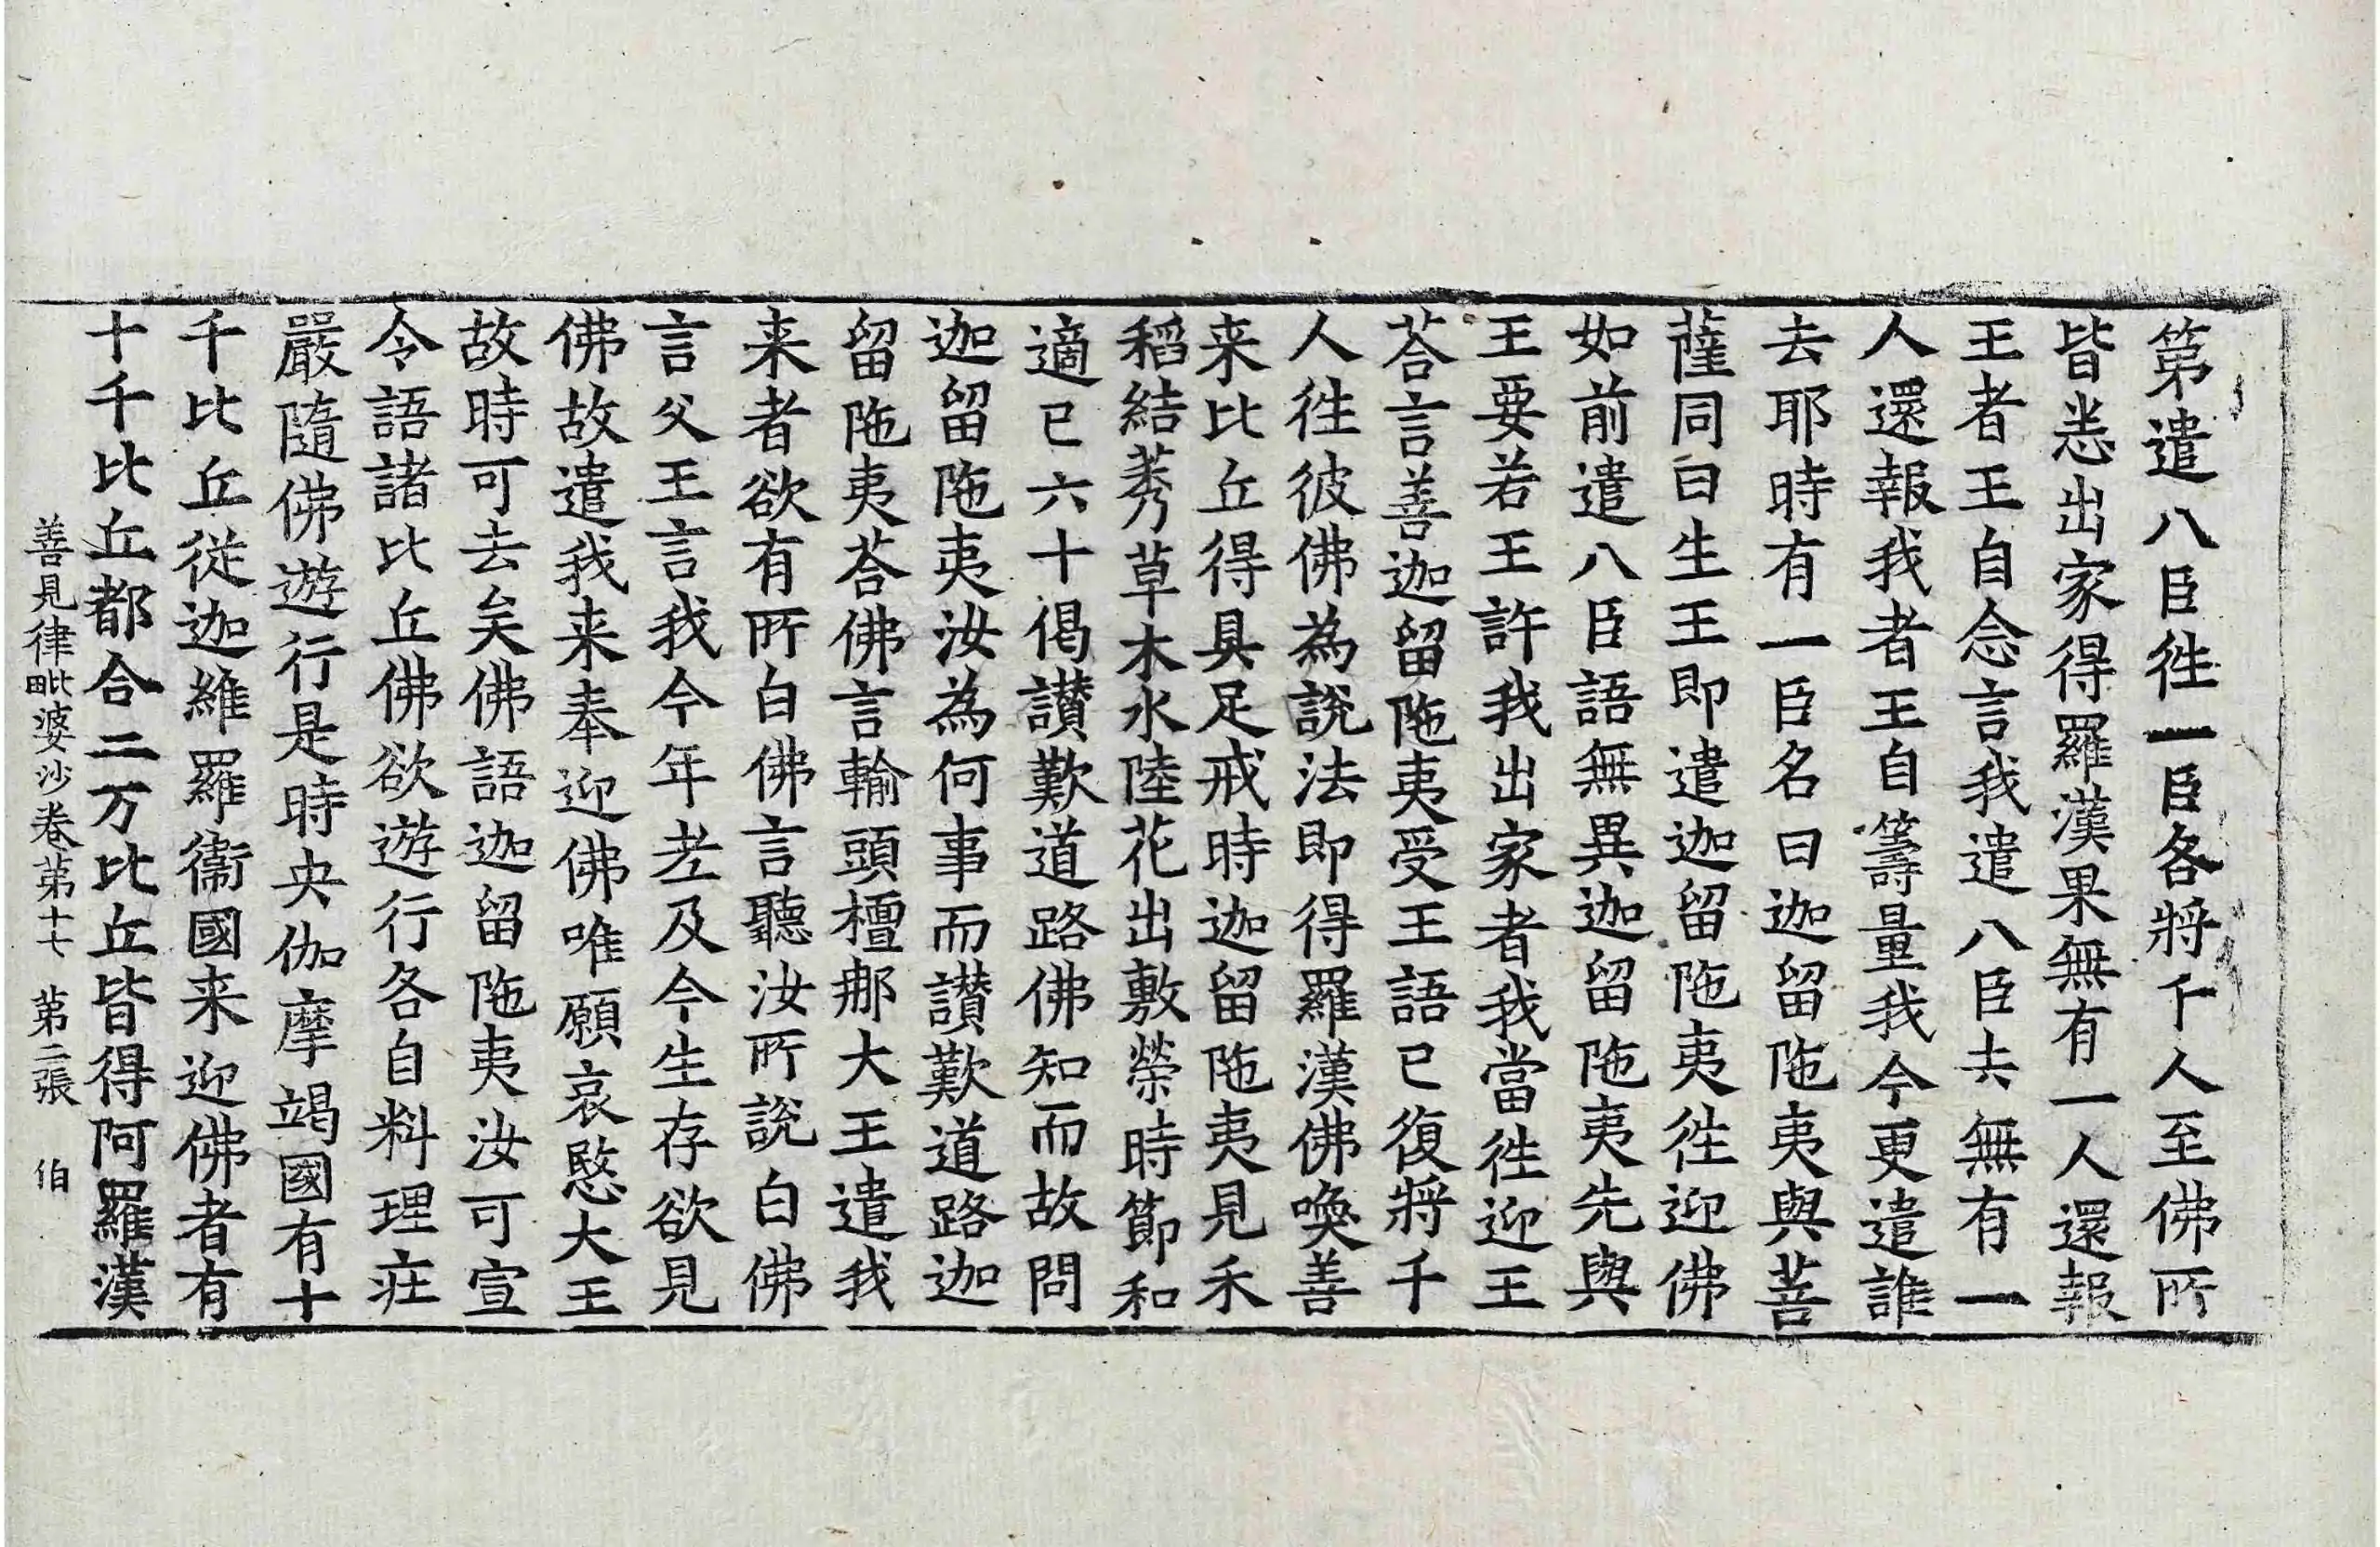 第遣八臣徃一臣各將千人至佛所
皆悉出家得羅漢果無有一人還報
王者王自念言我遣八臣去無有一
人還報我者王自籌量我今更遣誰
去耶時有一臣名曰迦留陁夷與菩
薩同日生王即遣迦留陁夷徃迎佛
如前遣八臣語無異迦留陁夷先與
王要若王許我出家者我當徃迎王
荅言善迦留陁夷受王語已復將千
人徃彼佛為說法即得羅漢佛喚善
来比丘得具足戒時迦留陁夷見禾
稻結莠草木水陸花出敷榮時節和
適已六十偈讃歎道路佛知而故問
迦留陁夷汝為何事而讃歎道路迦
留陁夷荅佛言輸頭檀那大王遣我
来者欲有所白佛言聽汝所說白佛
言父王言我今年老及今生存欲見
佛故遣我来奉迎佛唯願哀愍大王
故時可去矣佛語迦留陁夷汝可宣
令語諸比丘佛欲遊行各自料理疘
嚴隨佛遊行是時央伽摩竭國有十
千比丘從迦維羅衛國来迎佛者有
十千比丘都合二万比丘皆得阿羅漢
善見律毗婆沙卷第十七 第二張 伯